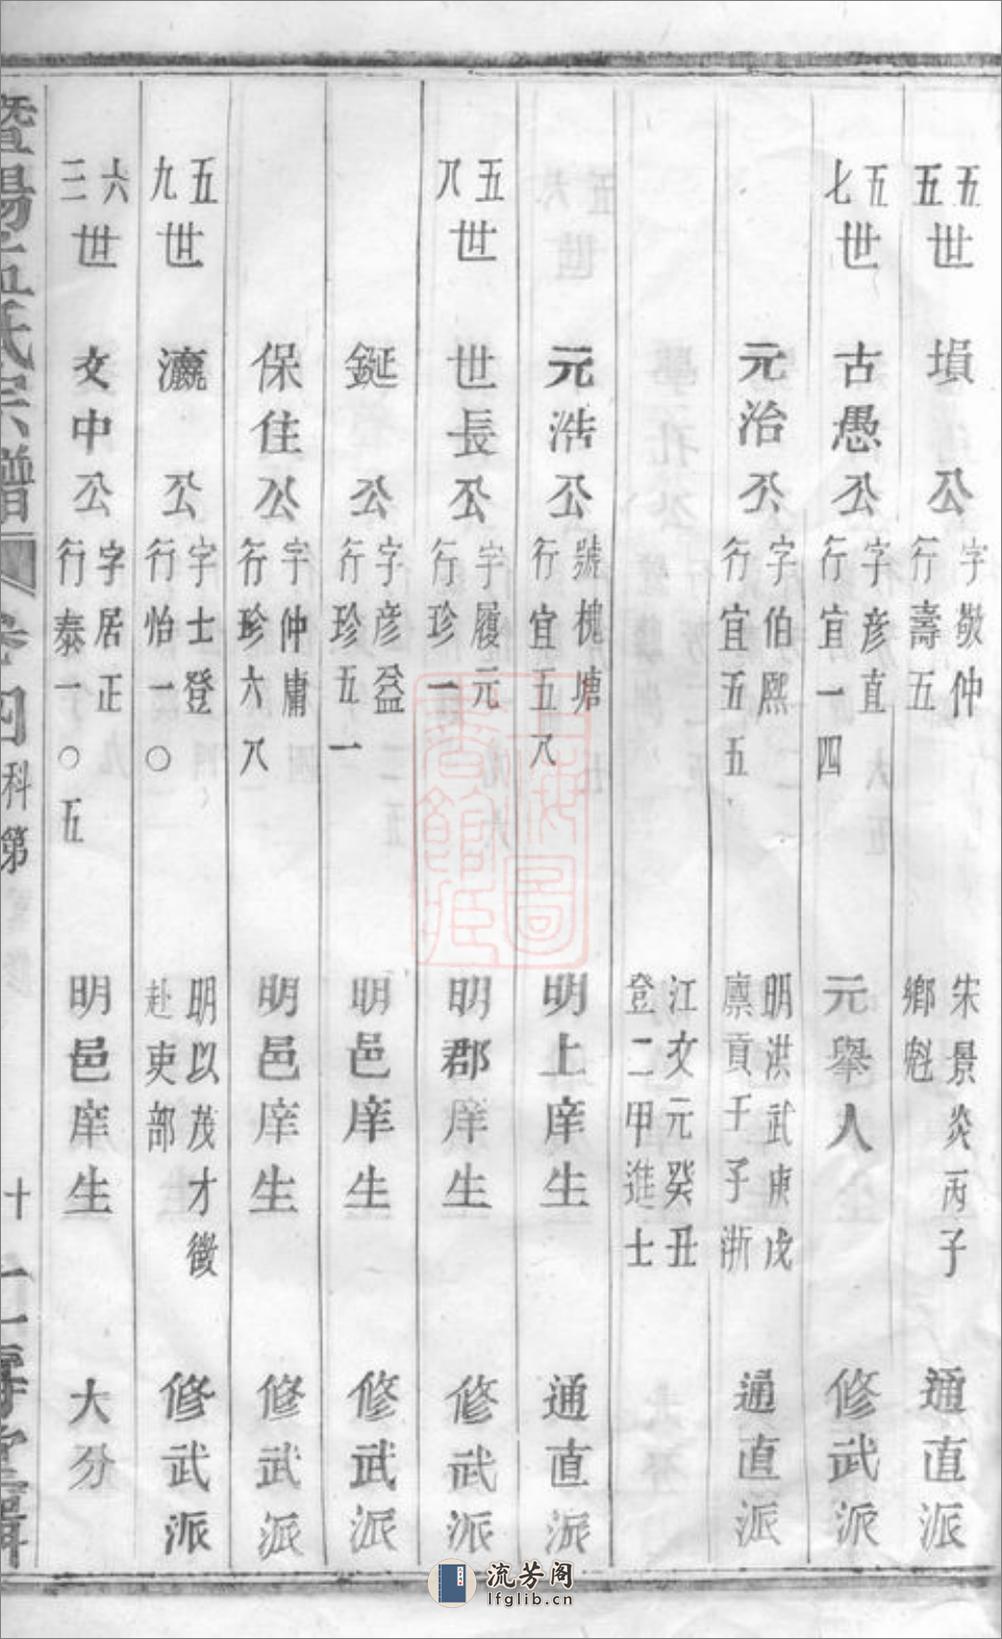 五五世 塤公 字敬仲 行壽五 宋景炎丙子鄉魁 通直派
五七世 古愚公 字彥直 行宜一四 元舉人 修武派
元治公 字伯熙 行宜五五 明洪武庚戌廩貢壬子浙 通直派
江文元癸丑登二甲進士
元浩公 號槐塘 行宜五八 明上庠生 通直派
五八世 世長公 字履元 行珍一 明郡庠生 修武派
鋋公 字彥益 行珍五一 明邑庠生 修武派
保住公 字仲庸 行珍六八 明邑庠生 修武派
五九世 瀛公 字士登 行怡一〇 明以茂才徵赴吏部 修武派
六三世 文中公 字居正 行泰一〇五 明邑庠生 大分
暨陽孟氏宗譜 卷四 科第 十一
上海圖書館藏
流芳阁
lfglib.cn